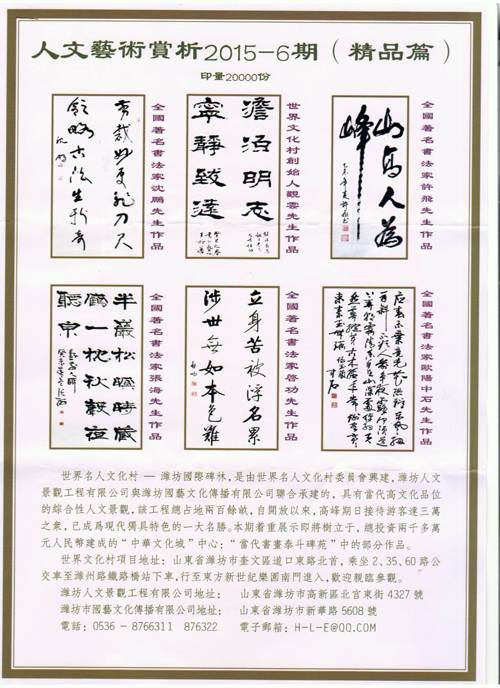 人文藝術賞析2015-6期（精品篇）
印量20000份
剪裁妙處非刀尺
領略古法生新奇
沈鵬
全國著名書法家沈鵬先生作品
澹泊明志
寧靜致遠
世界文化村創始人觀雲先生作品
山高人為
峰
全國著名書法家許飛先生作品
半巖松暝時藏
鶴一枕秋聲夜
聽泉
全國著名書法家張海先生作品
立身苦被浮名累
涉世無如本色難
啟功
全國著名書法家啓功先生作品
全國著名書法家歐陽中石先生作品
世界名人文化村 — 濰坊國際碑林,是由世界名人文化村委員會興建,濰坊人文
景觀工程有限公司與濰坊國藝文化傳播有限公司聯合承建的,具有當代高文化品位
的綜合性人文景觀,該工程總占地兩百餘畝,自開放以來,高峰期日接待游客達三萬
之衆,已成爲現代獨具特色的一大名勝。本期着重展示即將樹立于,總投資兩千多萬
元人民幣建成的“中華文化城”中心:“當代書畫泰斗碑苑”中的部分作品。
世界文化村項目地址: 山東省濰坊市奎文區道口東路北首,乘坐2、35、60路公
交車至濰州路鐵路橋站下車,行至東方新世紀樂園南門進入,歡迎親臨參觀。
濰坊人文景觀工程有限公司地址: 山東省濰坊市高新區北宫東街4327號
濰坊市國藝文化傳播有限公司地址: 山東省濰坊市新華路5608號
電話: 0536 - 8766311 876322 電子郵箱: H-L-E@QQ.COM